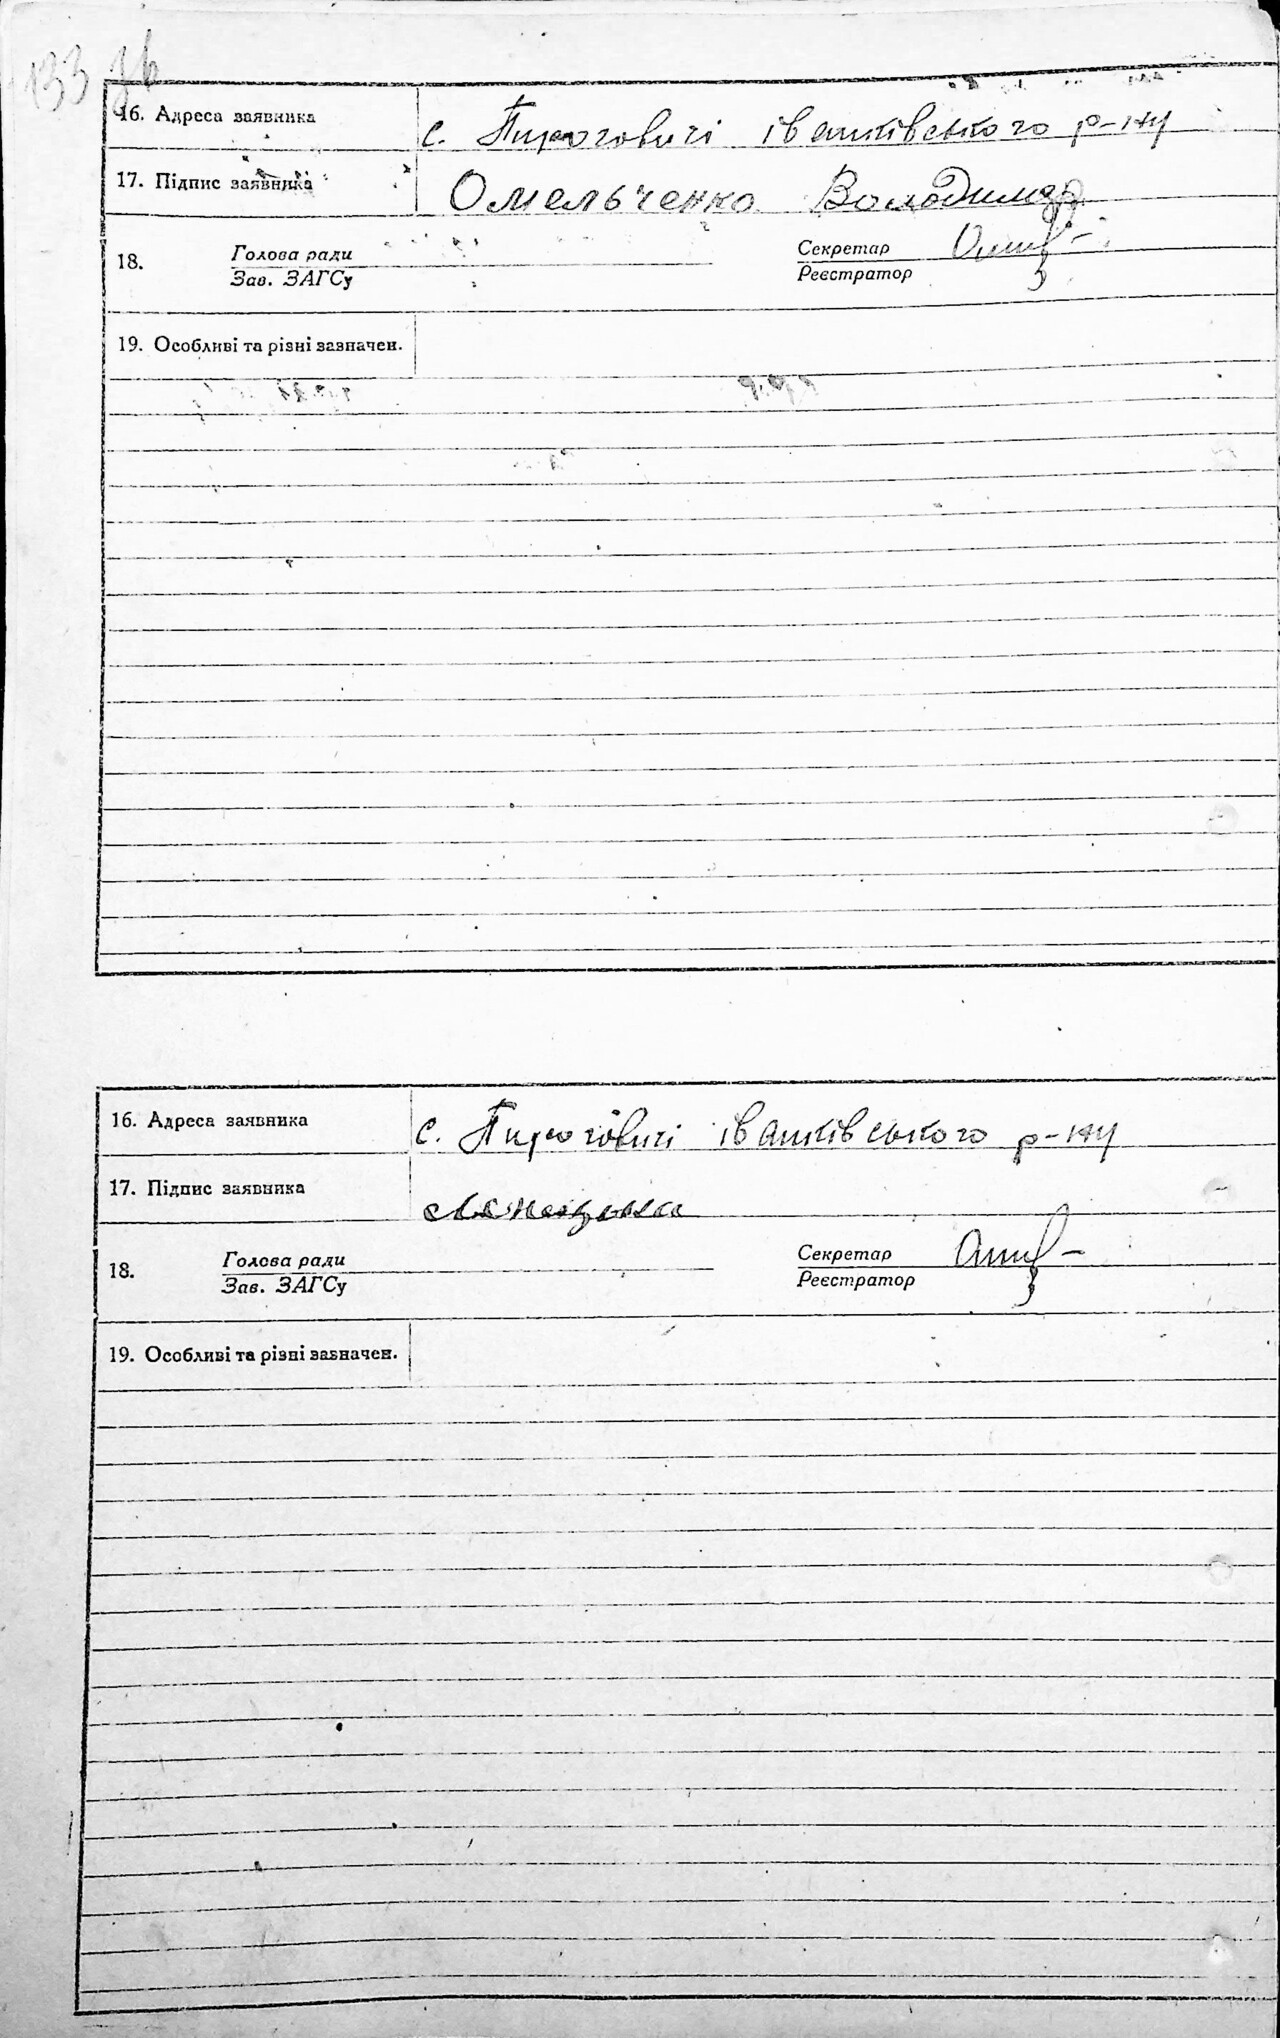 133 зв
16. Адреса заявника с. Пироговичі іванківського р-ну
17. Підпис заявника Омельченко Володимир
18. Голова ради Секретар
Зав. ЗАГСу Реєстратор
19. Особливі та різні зазначен.
16. Адреса заявника с. Пироговичі іванківського р-ну
17. Підпис заявника
18. Голова ради Секретар
Зав. ЗАГСу Реєстратор
19. Особливі та різні зазначен.